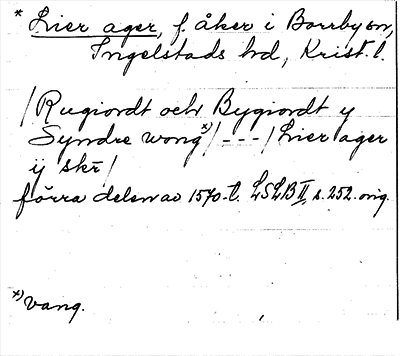 * Lier ager, f. åker i Borrby sn,
Ingelstads hd, Krist. l.
/Rugiordt och Bygiordt y
Syndre wong*)/---/Lier ager
ij skr/
förra delen av 1570-t. LSLB II, s. 252. orig.
*) vang.